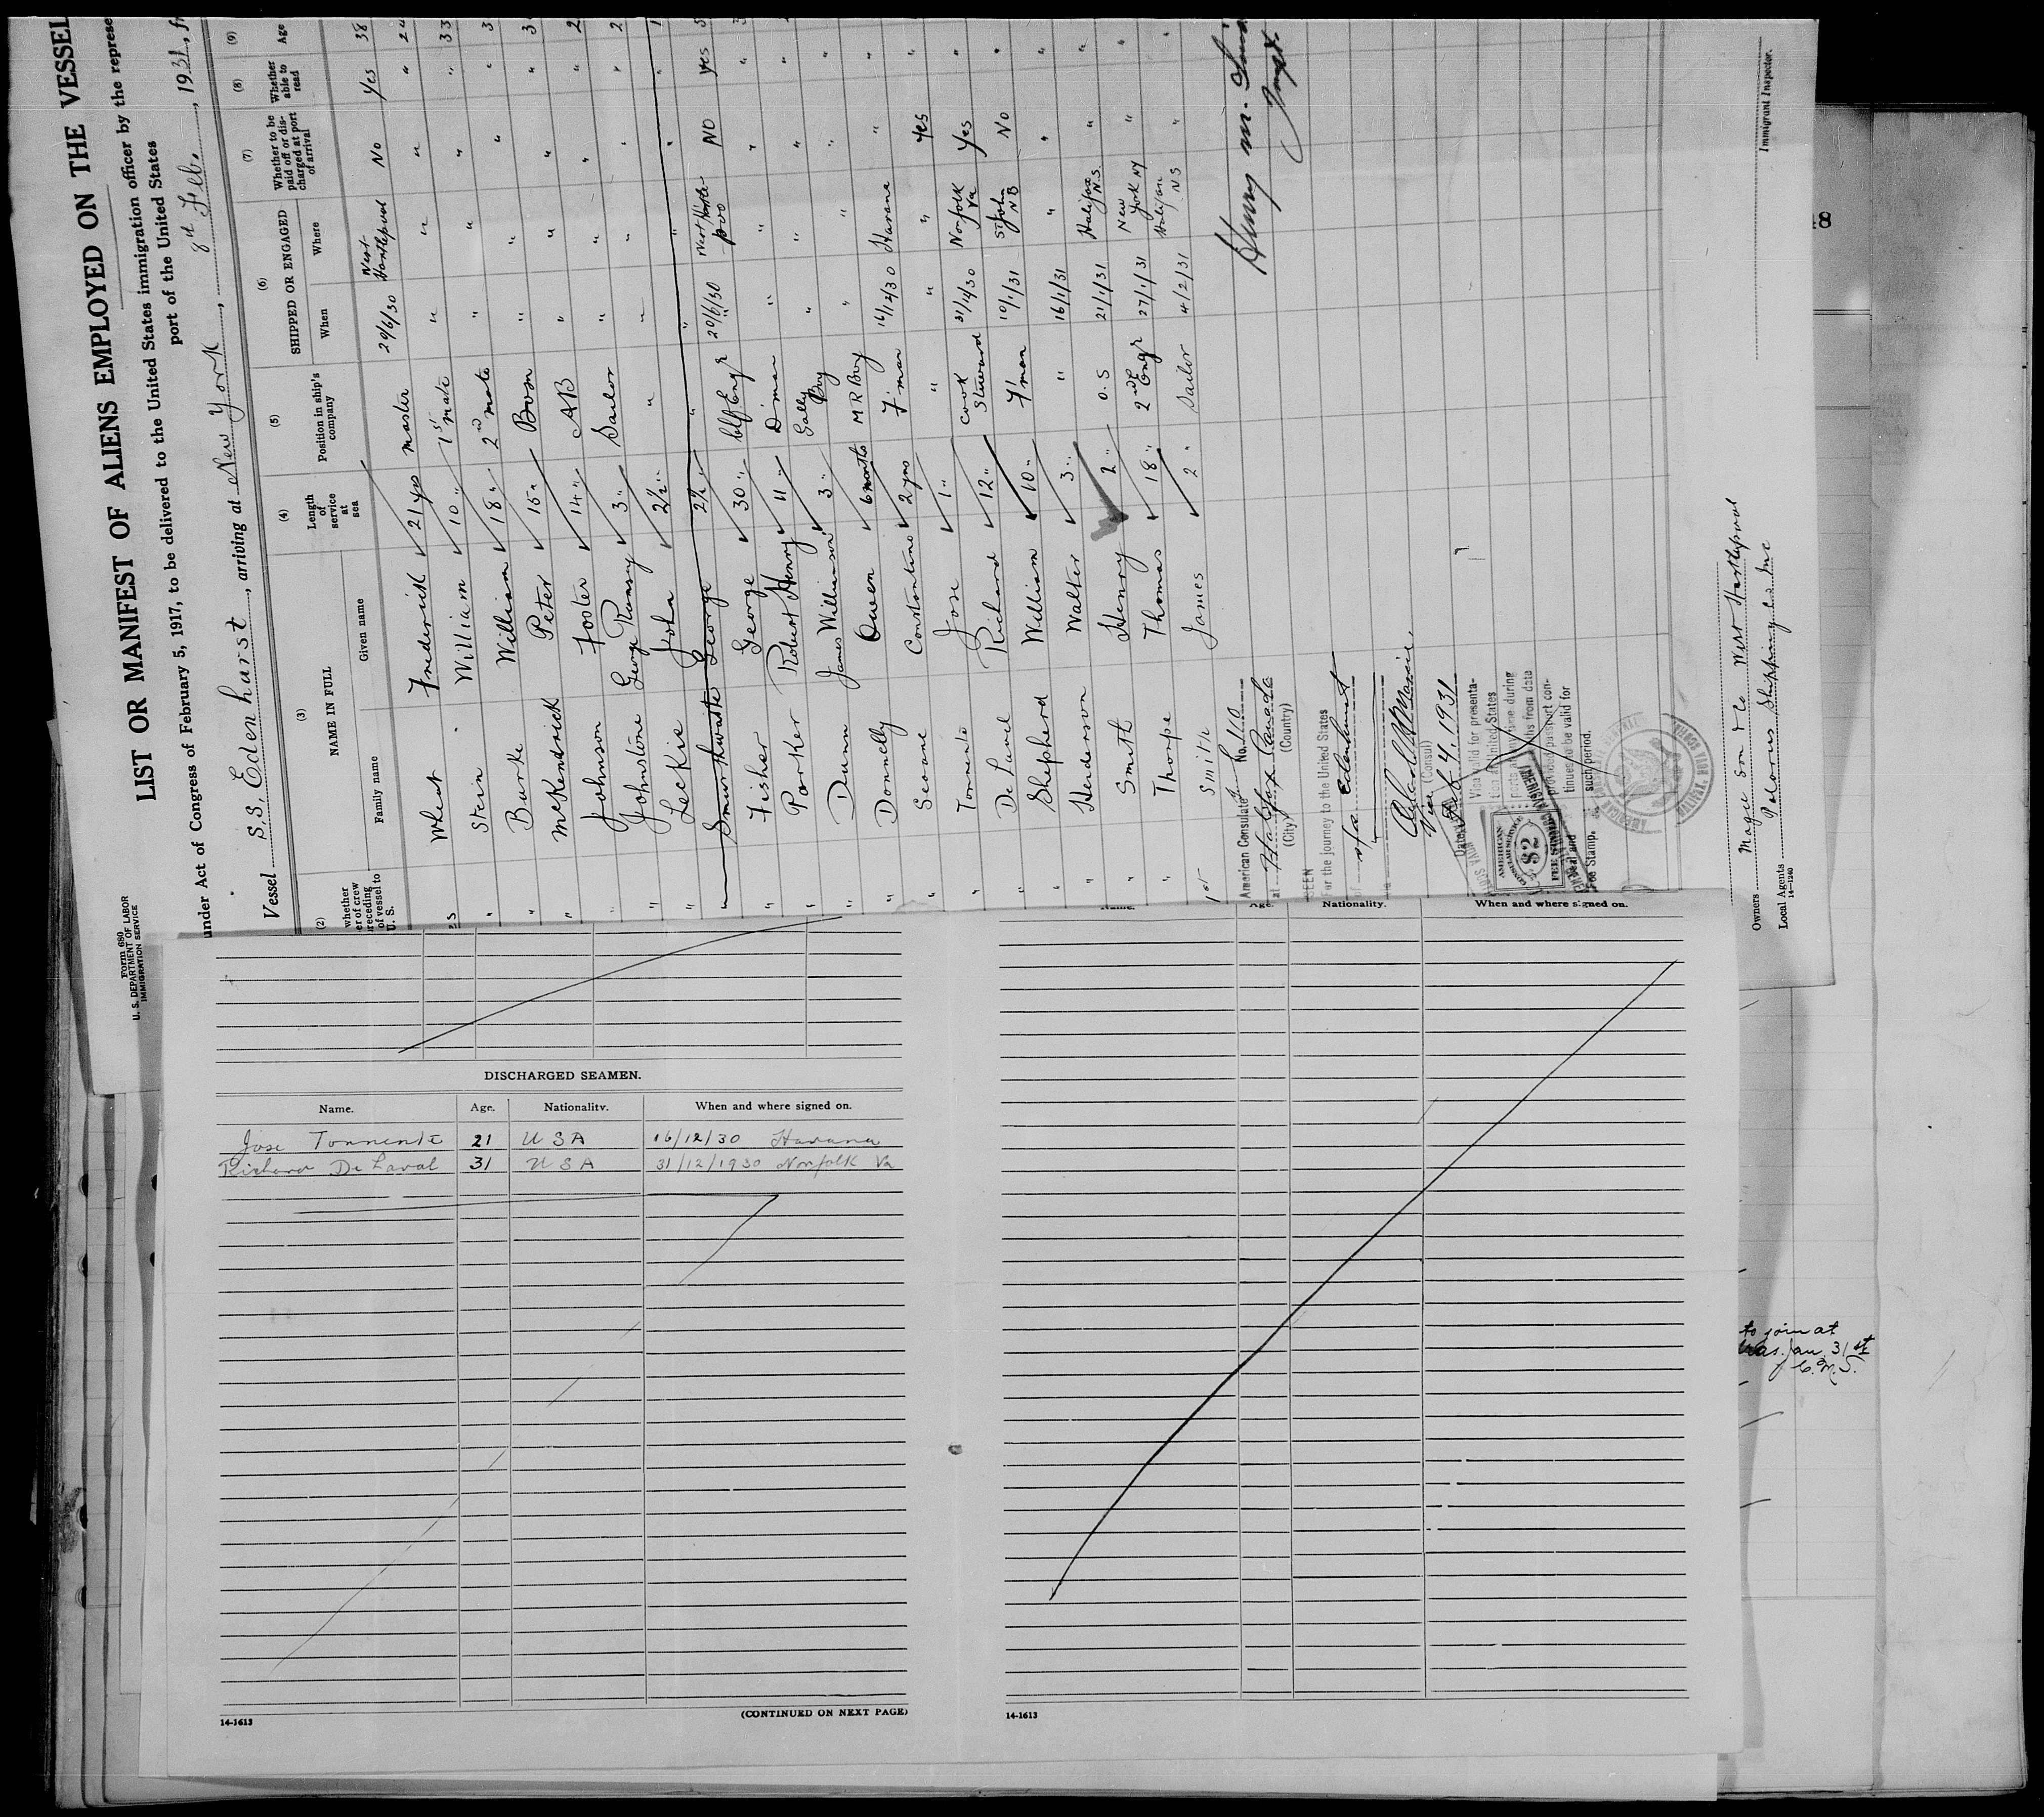 Form 680
U. S. DEPARTMENT OF LABOR
IMMIGRATION SERVICE
LIST OR MANIFEST OF ALIENS EMPLOYED ON THE VESSEL
under Act of Congress of February 5, 1917, to be delivered to the United States immigration officer by the represe
port of the United States
Vessel S.S. Edenhurst, arriving at New York, 8th Feb., 1931, fr
(2) (3) (4) (5) (6) (7) (8) (9)
whether er of crew receding of vessel to U. S.
NAME IN FULL
Family name
Given name
Length of service at sea
Position in ship's company
SHIPPED OR ENGAGED
When
Where
Whether to be paid off or dis- charged at port of arrival
Whether able to read
Age
es Wheat Frederick 21 yrs master 29/6/30 West Hartlepool No Yes 38
" Stein William 10 " 1st mate " " " " 2
" Burke William 18 " 2nd mate " " " " 33
" McKendrick Peter 15 " Bosn " " " " 3
" Johnson Foster 14 " AB " " " " 3
" Johnstone George Ramsey 3 " Sailor " " " " 2
" Leckie John 2½ " " " " " " 2
" Smurthwaite George 2½ " " " " " " 1
" Fisher George 30 " Chf Engr 29/6/30 West Hartle- pool NO Yes 5
" Parker Robert Henry 11 " D'man " " " " 3
" Dunn James Williamson 3 " Gally Boy " " " "
" Donnelly Owen 6 months M R Boy " " " "
" Seoane Constantino 2 yrs F'man 16/12/30 Havana " "
" Tormento Jose 1 " " " " Yes "
" De Lavel Richard 12 " Cook Steward 31/12/30 Norfolk Va Yes "
" Shepherd William 10 " F'man 10/1/31 St John NB No "
" Henderson Walter 3 " " 16/1/31 " " "
" Smith Henry 2 " O.S 21/1/31 Halifax N.S. " "
" Thorpe Thomas 18 " 2nd Engr 27/1/31 New York NY " "
1st Smith James 2 " Sailor 4/2/31 Halifax NS " "
Henry M.
American Consulate No. 110
at Halifax Canada
(City) (Country)
SEEN
For the journey to the United States
of s/s Edenhurst
Vice (Consul)
Date Feb 4, 1931
Visa valid for presenta-
tion at United States
ports at any time during
ths from date
provided passport con-
tinues to be valid for
such period.
Seal and
Fee Stamp.
AMERICAN
CONSULAR SERVICE
$2
FEE STAMP
Immigrant Inspector.
Owners Magee Son & Co West Hartlepool
Local Agents Polarus Shipping Co. Inc
14-1240
48
Name. Age. Nationality. When and where signed on.
DISCHARGED SEAMEN.
Name. Age. Nationality. When and where signed on.
Jose Tormente 21 USA 16/12/30 Havana
Richard De Laval 31 USA 31/12/1930 Norfolk Va
14-1613
(CONTINUED ON NEXT PAGE)
14-1613
to join at
Jan 31st